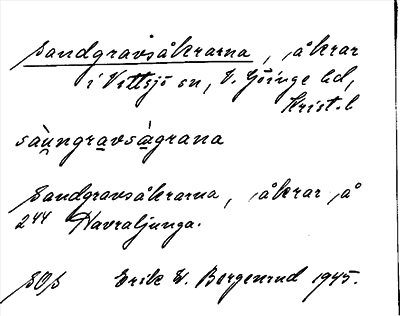 Sandgravsåkrarna, åkrar
i Vittsjö sn, V. Göinge hd,
Krist. l
sàùngravsàgrana
Sandgravsåkrarna, åkrar å
2⁴⁴ Havraljunga.
SOS Erik W. Bergenrud 1945.